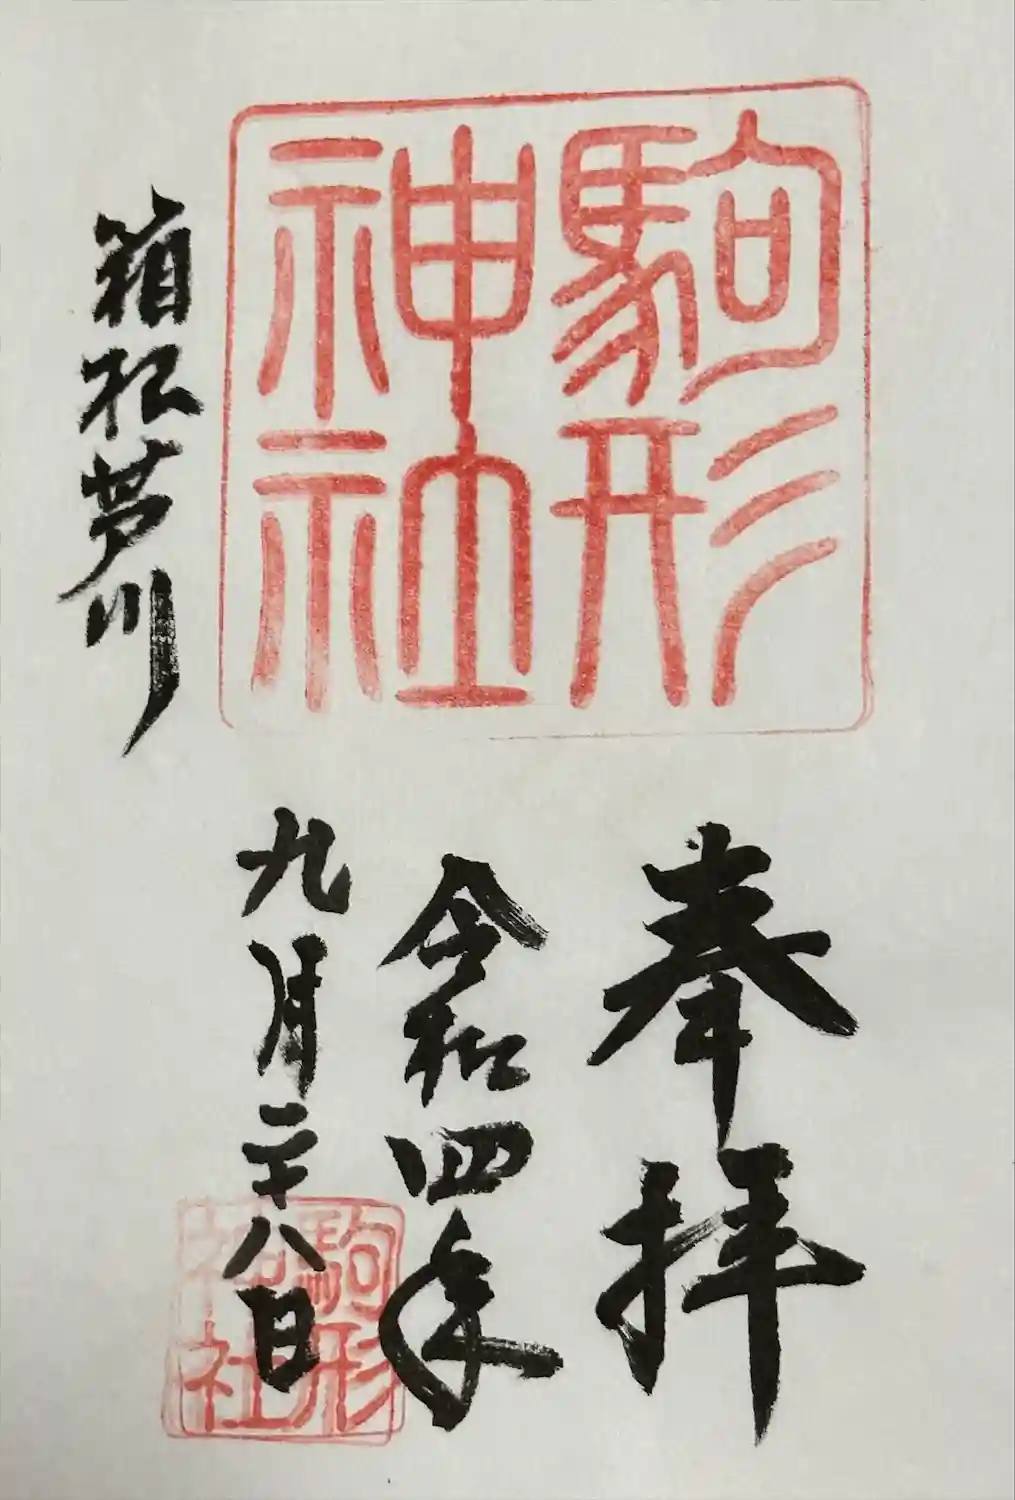 奉拝
駒形
神社
令和四年
九月二十八日
駒形
神社
箱根芦川